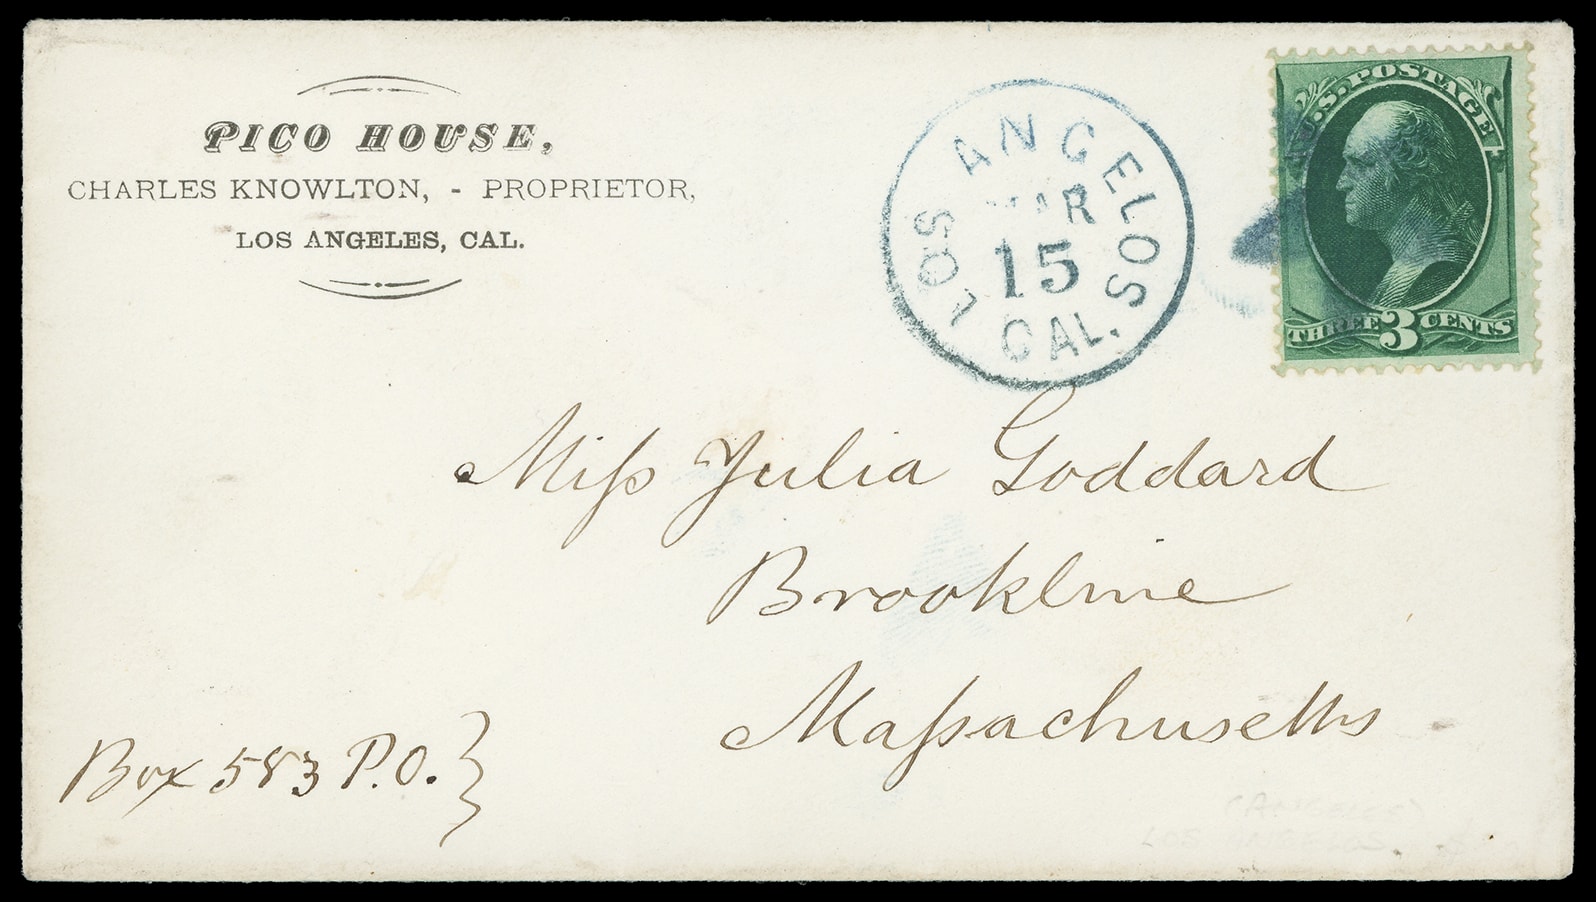 PICO HOUSE,
CHARLES KNOWLTON, - PROPRIETOR,
LOS ANGELES, CAL.
LOS ANGELOS
MAR
15
CAL.
U.S. POSTAGE
THREE 3 CENTS
Miſs Julia Goddard
Brookline
Maſsachusetts
Box 583 P.O.
LOS ANGELES